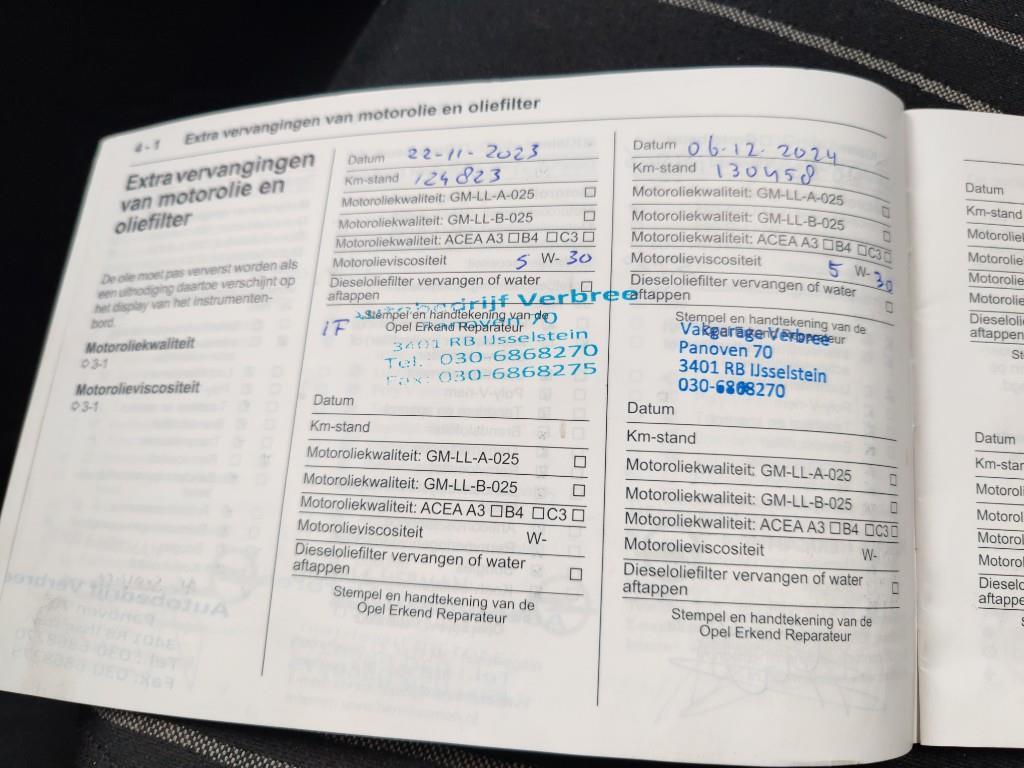 4 - 1 Extra vervangingen van motorolie en oliefilter
Extra vervangingen
van motorolie en
oliefilter
De olie moet pas ververst worden als
een uitnodiging daartoe verschijnt op
het display van het instrumenten-
bord.
Motoroliekwaliteit
3-1
Motorolieviscositeit
3-1
Datum 22-11-2023
Km-stand 124823
Motoroliekwaliteit: GM-LL-A-025 ☐
Motoroliekwaliteit: GM-LL-B-025 ☐
Motoroliekwaliteit: ACEA A3 ☐B4 ☐C3 ☐
Motorolieviscositeit 5 W- 30
Dieseloliefilter vervangen of water
aftappen ☐
Autobedrijf Verbree
Stempel en handtekening van de
Panoven 70
Opel Erkend Reparateur
3401 RB IJsselstein
Tel.: 030-6868270
Fax: 030-6868275
Datum
Km-stand
Motoroliekwaliteit: GM-LL-A-025 ☐
Motoroliekwaliteit: GM-LL-B-025 ☐
Motoroliekwaliteit: ACEA A3 ☐B4 ☐C3 ☐
Motorolieviscositeit W-
Dieseloliefilter vervangen of water
aftappen ☐
Stempel en handtekening van de
Opel Erkend Reparateur
Datum 06.12.2024
Km-stand 130458
Motoroliekwaliteit: GM-LL-A-025 ☐
Motoroliekwaliteit: GM-LL-B-025 ☐
Motoroliekwaliteit: ACEA A3 ☐B4 ☐C3 ☐
Motorolieviscositeit 5 W- 30
Dieseloliefilter vervangen of water
aftappen ☐
Stempel en handtekening van de
Opel Erkend Reparateur
Vakgarage Verbree
Panoven 70
3401 RB IJsselstein
030-6868270
Datum
Km-stand
Motoroliekwaliteit: GM-LL-A-025 ☐
Motoroliekwaliteit: GM-LL-B-025 ☐
Motoroliekwaliteit: ACEA A3 ☐B4 ☐C3 ☐
Motorolieviscositeit W-
Dieseloliefilter vervangen of water
aftappen ☐
Stempel en handtekening van de
Opel Erkend Reparateur
Datum
Km-stand
Datum